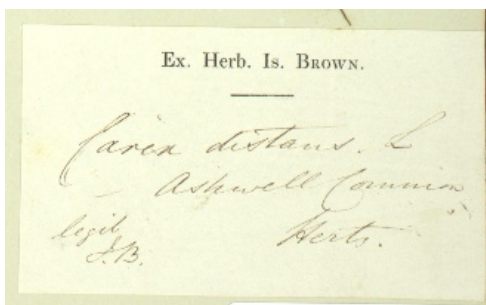 Ex. Herb. Is. BROWN.
Carex distans. L
Ashwell Common
Herts.
legit
I.B.